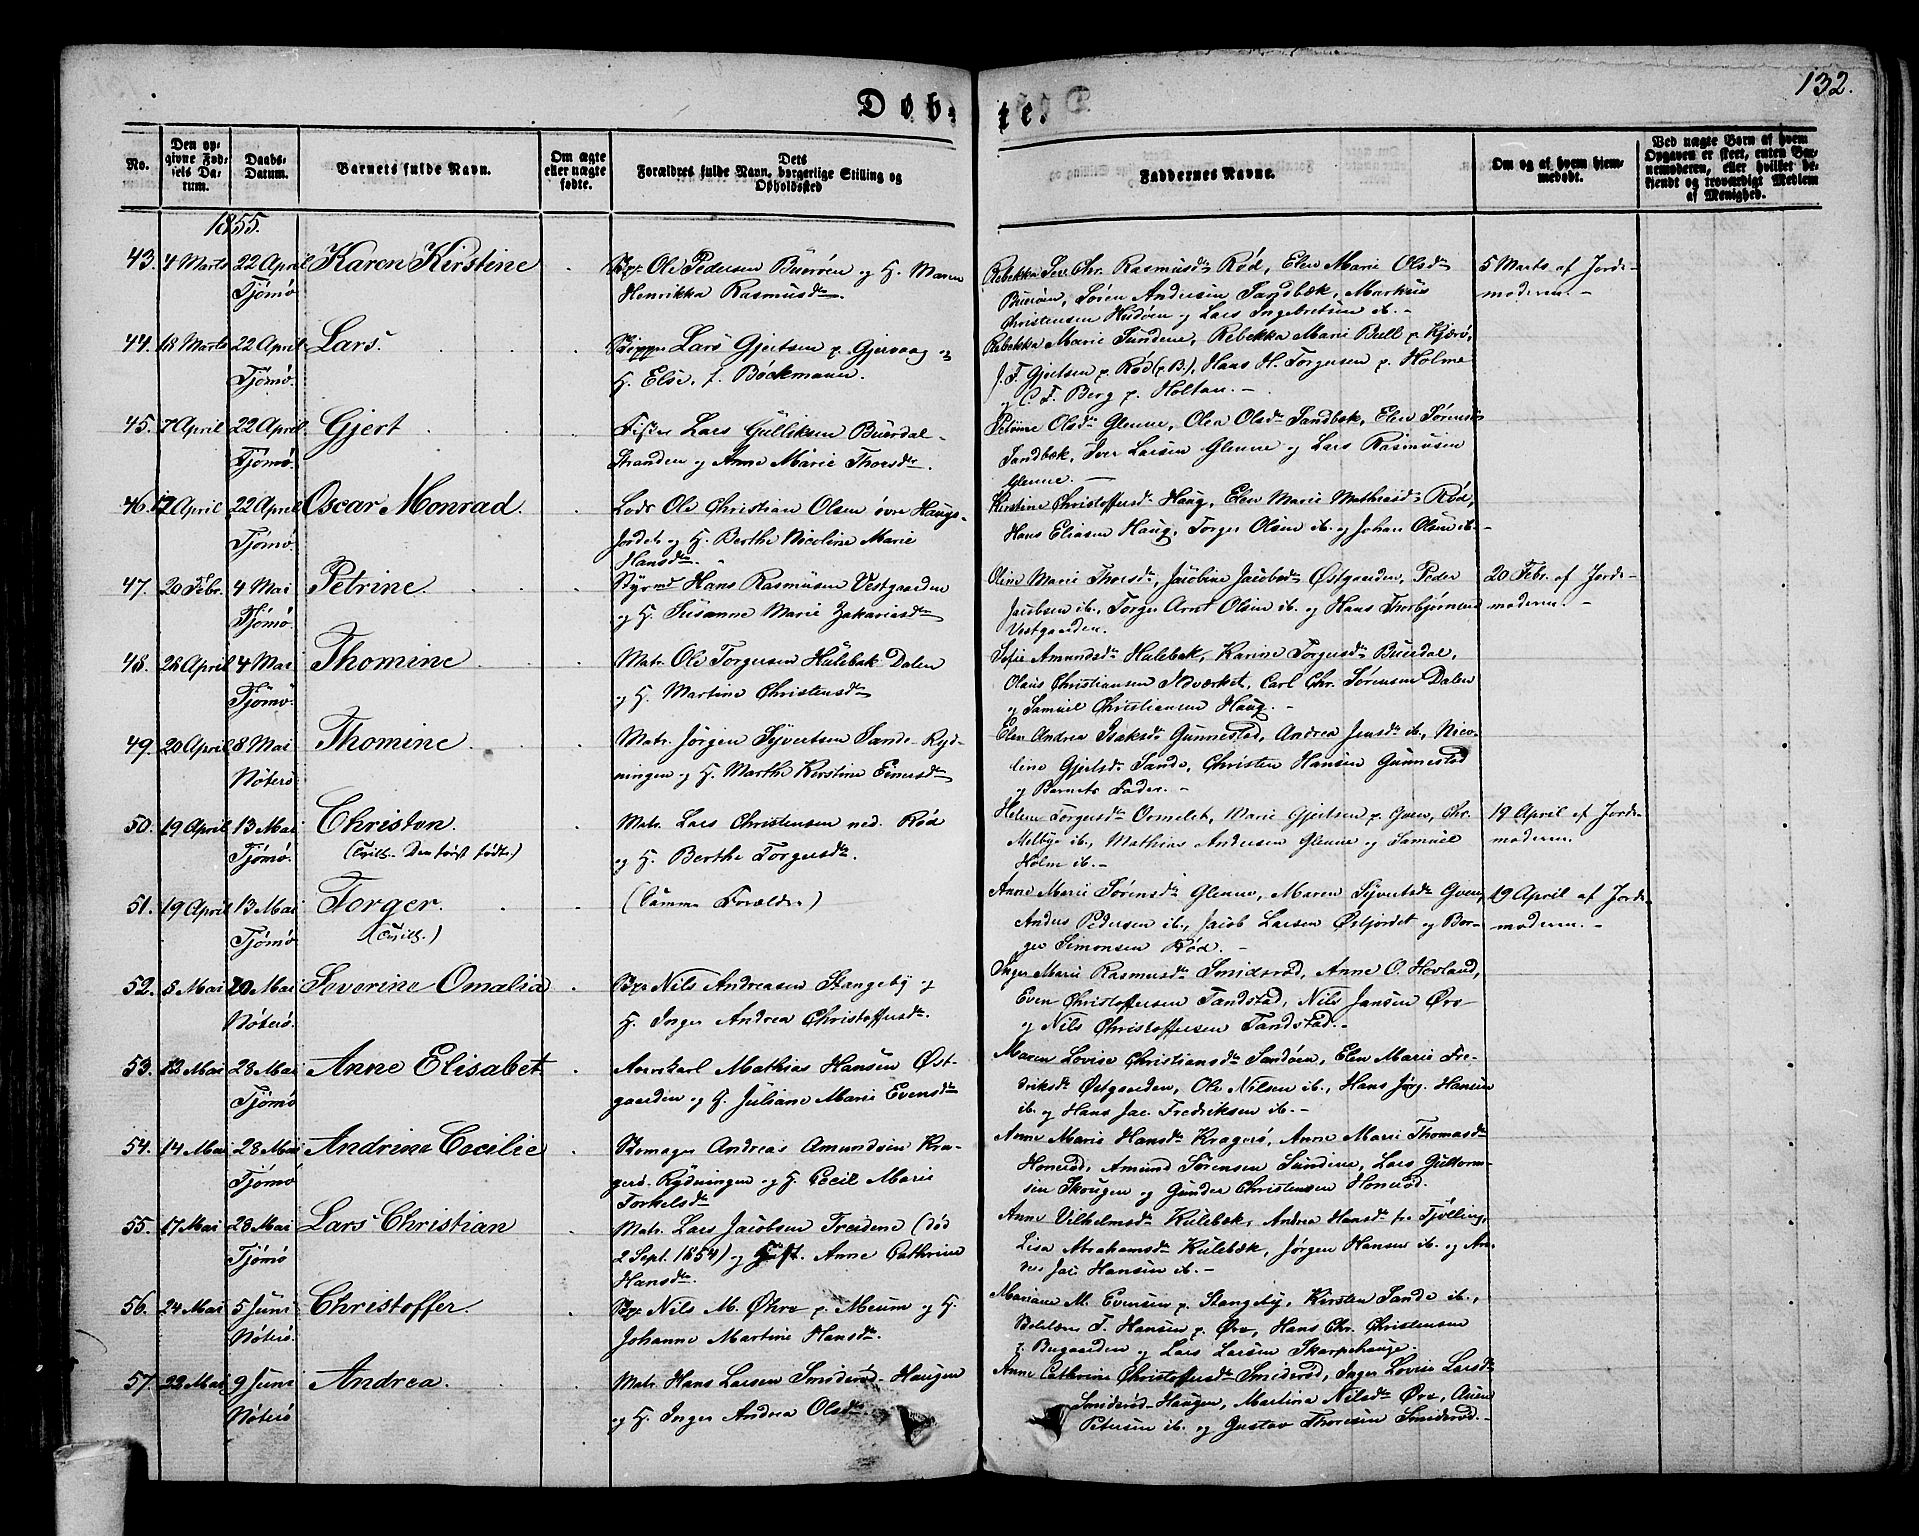 132.
Døbte.
No.
Den opgivne Fødsels Datum.
Daabs-Datum.
Barnets fulde Navn.
Om ægte eller uægte fødte.
Forældres fulde Navn, Dets borgerlige Stilling og Opholdssted
Faddernes Navne.
Om og af hvem hjemmedøbt.
Ved uægte Børn af hvem Opgaven er skeet, enten Barnemoderen, eller hvilket bekjendt og troværdigt Medlem af Menighed.
1855.
43. 4 Marts 22 April Tjømø Karen Kirstine
Ole Pedersen Buerøen og H. Maren
Henrikka Rasmusdtr.
Rebekka Sev. Chr. Rasmusdr Rød, Elen Marie Olsdr
Buerøen, Søren Andersen Sandbæk, Markus
Christensen Hudøen og Lars Ingebretsen ib. -
5 Marts af Jorde-
moderen. -
44. 18 Marts 22 April Tjømø. Lars.
Skipper Lars Gjertsen p. Gjervaag og
H. Else, f. Bøckmann.
Rebekka Marie Sundene, Rebekka Marie Bull p. Kjærø,
J. F. Gjertsen p. Rød (p. B.), Hans H. Torgersen p. Holme
og C. F. Berg p. Holtan. -
45. 7 April 22 April Tjømø. Gjert
Fisker Lars Gulliksen Buerdal-
Stranden og Anne Marie Thorsdtr.
Olsdr Glenne, Olea Olsdr Sandbæk, Elen Sørensdr
Sandbæk, Iver Larsen Glenne og Lars Rasmusen
Glenne. -
46. 12 April 22 April Tjømø. Oscar Monrad.
Lods Ole Christian Olsen øvre Haugs-
Jordet og H. Berthe Nicoline Marie
Hansdtr.
Kirstine Christoffersdr Haug, Elen Marie Mathiasdr Rød,
Hans Eliasen Haug, Torger Olsen ib. og Johan Olsen ib. -
47. 20 Febr. 4 Mai Tjømø. Petrine.
Styrmd Hans Rasmusen Vestgaarden
og H. Susanne Marie Zakariasdtr
Oline Marie Thorsdr, Jacobine Jacobsdr Østgaarden, Peder
Jacobsen ib., Torger Arnt Olsen ib. og Hans Thorbjørnsen
Vestgaarden.
20 Febr. af Jorde-
moderen. -
48. 26 April 4 Mai Tjømø. Thomine
Matr. Ole Torgersen Hulebak Dalen
og H. Martine Christensdtr
Sofie Amundsdr Hulebak, Karine Torgersdr Buerdal,
Olaus Christiansen Ildværket, Carl Chr. Sørensen Dalen
og Samuel Christiansen Haug. -
49. 20 April 8 Mai Nøterø. Thomine.
Matr. Jørgen Syvertsen Sande-Ryd-
ningen og H. Marthe Kirstine Einersdtr
Elen Andrea Isaksdr Gunnestad, Andrea Jensdr ib., Nico-
line Gjertsdr Sande, Christen Hansen Gunnestad
og Barnets Fader. -
50. 19 April 13 Mai Tjømø. Christen.
(Tvill. Den først fødte.)
Matr. Lars Christensen ned. Rød
og H. Berthe Torgersdtr.
Helene Torgersdr Ormelet, Marie Gjertsen p. Gven, Chr.
Melbye ib., Mathias Andersen Glenne og Samuel
Holm ib. -
19 April af Jorde-
moderen. -
51. 19 April 13 Mai Tjømø Torger.
(Tvill.)
(Samme Forældre)
Anne Marie Sørensdr Glenne, Maren Syvertsdr Gven,
Anders Pedersen ib., Jacob Larsen Østjordet og Bor-
ger Simonsen Rød. -
19 April af Jorde-
moderen. -
52. 5 Mai 20 Mai Nøterø. Severine Omalia
Nils Andreasen Stangeby og
H. Inger Andrea Christoffersdtr.
Inger Marie Rasmusdr Smidsrød, Anne O. Hovland,
Even Christoffersen Tandstad, Nils Jansen Øre
og Nils Christoffersen Tandstad. -
53. 12 Mai 28 Mai Tjømø Anne Elisabet
Mathias Hansen Øst-
gaarden og H. Juliane Marie Evensdtr
Maren Lovise Christiansdr Sandøen, Elen Marie Fre-
driksdr Østgaarden, Ole Nilsen ib., Hans Jørg. Hansen
ib. og Hans Jac. Fredriksen ib. -
54. 14 Mai 28 Mai Tjømø Andrine Cecilie
Skomager Andreas Amundsen Kra-
gerø-Rydningen og H. Cecil Marie
Torkelsdtr
Anne Marie Hansdr Kragerø, Anne Marie Thomasdr
Honerød, Amund Sørensen Sundene, Lars Guttorm-
sen Skougen og Gunder Christensen Honerød.
55. 17 Mai 28 Mai Tjømø Lars Christian
Matr. Lars Jacobsen Treidene (død
2 Sept. 1854) og Anne Cathrine
Hansdtr.
Anne Vilhelmsdr Kulebæk, Andrea Hansdr fra Tjølling,
Lisa Abrahamsdr Kulebæk, Jørgen Hansen ib. og An-
ders Jac. Hansen ib. -
56. 24 Mai 5 Juni Nøterø. Christoffer.
Nils M. Øhre p. Meum og H.
Johanne Martine Hansdtr.
Mariane M. Evensen p. Stangeby, Kirsten Sande ib.,
T. Hansen p. Øre, Hans Chr. Christensen
p. Bugaarden og Lars Larsen Skarpehauge. -
57. 22 Mai 9 Juni Nøterø Andrea.
Matr. Hans Larsen Smiderød-Haugen
og H. Inger Andrea Olsdtr.
Anne Cathrine Christoffersdr Smiderød, Inger Lovise Larsdr
Smiderød-Haugen, Martine Nilsdr Øre,
Petersen ib. og Gustav Thoresen Smiderød. -